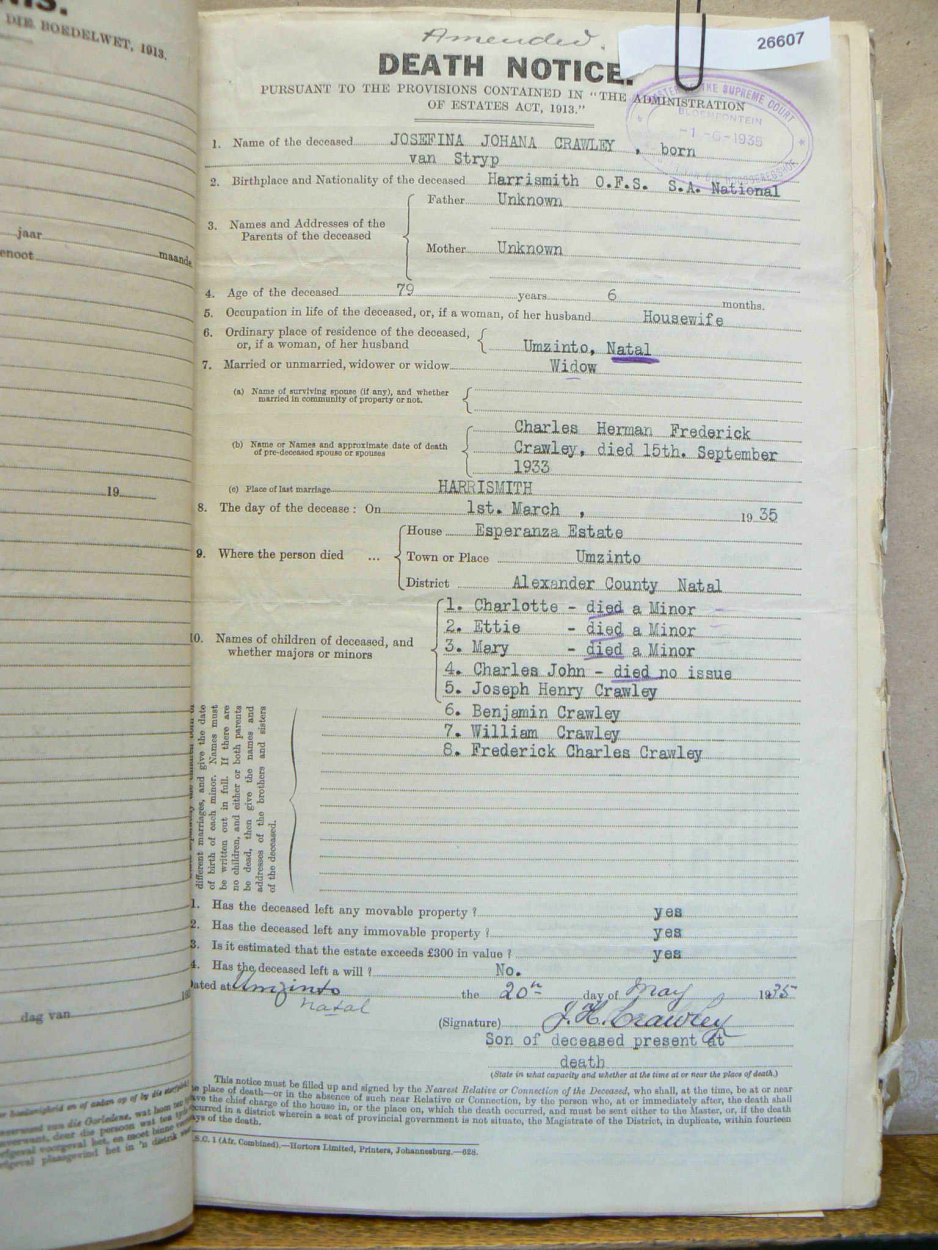 NIS.
DIE BOEDELWET, 1913.
jaar
enoot
maande
19
193
dag van
Amended.
26607
DEATH NOTICE.
PURSUANT TO THE PROVISIONS CONTAINED IN "THE ADMINISTRATION
OF ESTATES ACT, 1913."
MASTER OF THE SUPREME COURT
BLOEMFONTEIN
-1-6-1935
1. Name of the deceased JOSEFINA JOHANA CRAWLEY , born
van Stryp
2. Birthplace and Nationality of the deceased Harrismith O.F.S. S.A. National
3. Names and Addresses of the Parents of the deceased
Father Unknown
Mother Unknown
4. Age of the deceased 79 years 6 months.
5. Occupation in life of the deceased, or, if a woman, of her husband Housewife
6. Ordinary place of residence of the deceased,
or, if a woman, of her husband Umzinto, Natal
7. Married or unmarried, widower or widow Widow
(a) Name of surviving spouse (if any), and whether
married in community of property or not.
(b) Name or Names and approximate date of death
of pre-deceased spouse or spouses
Charles Herman Frederick
Crawley, died 15th. September
1933
(c) Place of last marriage HARRISMITH
8. The day of the decease : On 1st. March , 1935
9. Where the person died ...
House Esperanza Estate
Town or Place Umzinto
District Alexander County Natal
10. Names of children of deceased, and
whether majors or minors
1. Charlotte - died a Minor -
2. Ettie - died a Minor -
3. Mary - died a Minor
4. Charles John - died no issue
5. Joseph Henry Crawley
6. Benjamin Crawley
7. William Crawley
8. Frederick Charles Crawley
different marriages, and give the date
of birth of each minor. Names must
be written out in full. If there are
no children, and either or both parents
be dead, then give the names and
addresses of the brothers and sisters
of the deceased.
1. Has the deceased left any movable property ? yes
2. Has the deceased left any immovable property ? yes
3. Is it estimated that the estate exceeds £300 in value ? yes
4. Has the deceased left a will ? No.
Dated at Umzinto the 20th day of May 1935
Natal
(Signature) J.H. Crawley
Son of deceased present at
death
(State in what capacity and whether at the time at or near the place of death.)
This notice must be filled up and signed by the Nearest Relative or Connection of the Deceased, who shall, at the time, be at or near
the place of death—or in the absence of such near Relative or Connection, by the person who, at or immediately after, the death shall
have the chief charge of the house in, or the place on, which the death occurred, and must be sent either to the Master, or, if the death
occurred in a district wherein a seat of provincial government is not situate, the Magistrate of the District, in duplicate, within fourteen
days of the death.
S.C. 1 (Afr. Combined).—Hortors Limited, Printers, Johannesburg.—628.